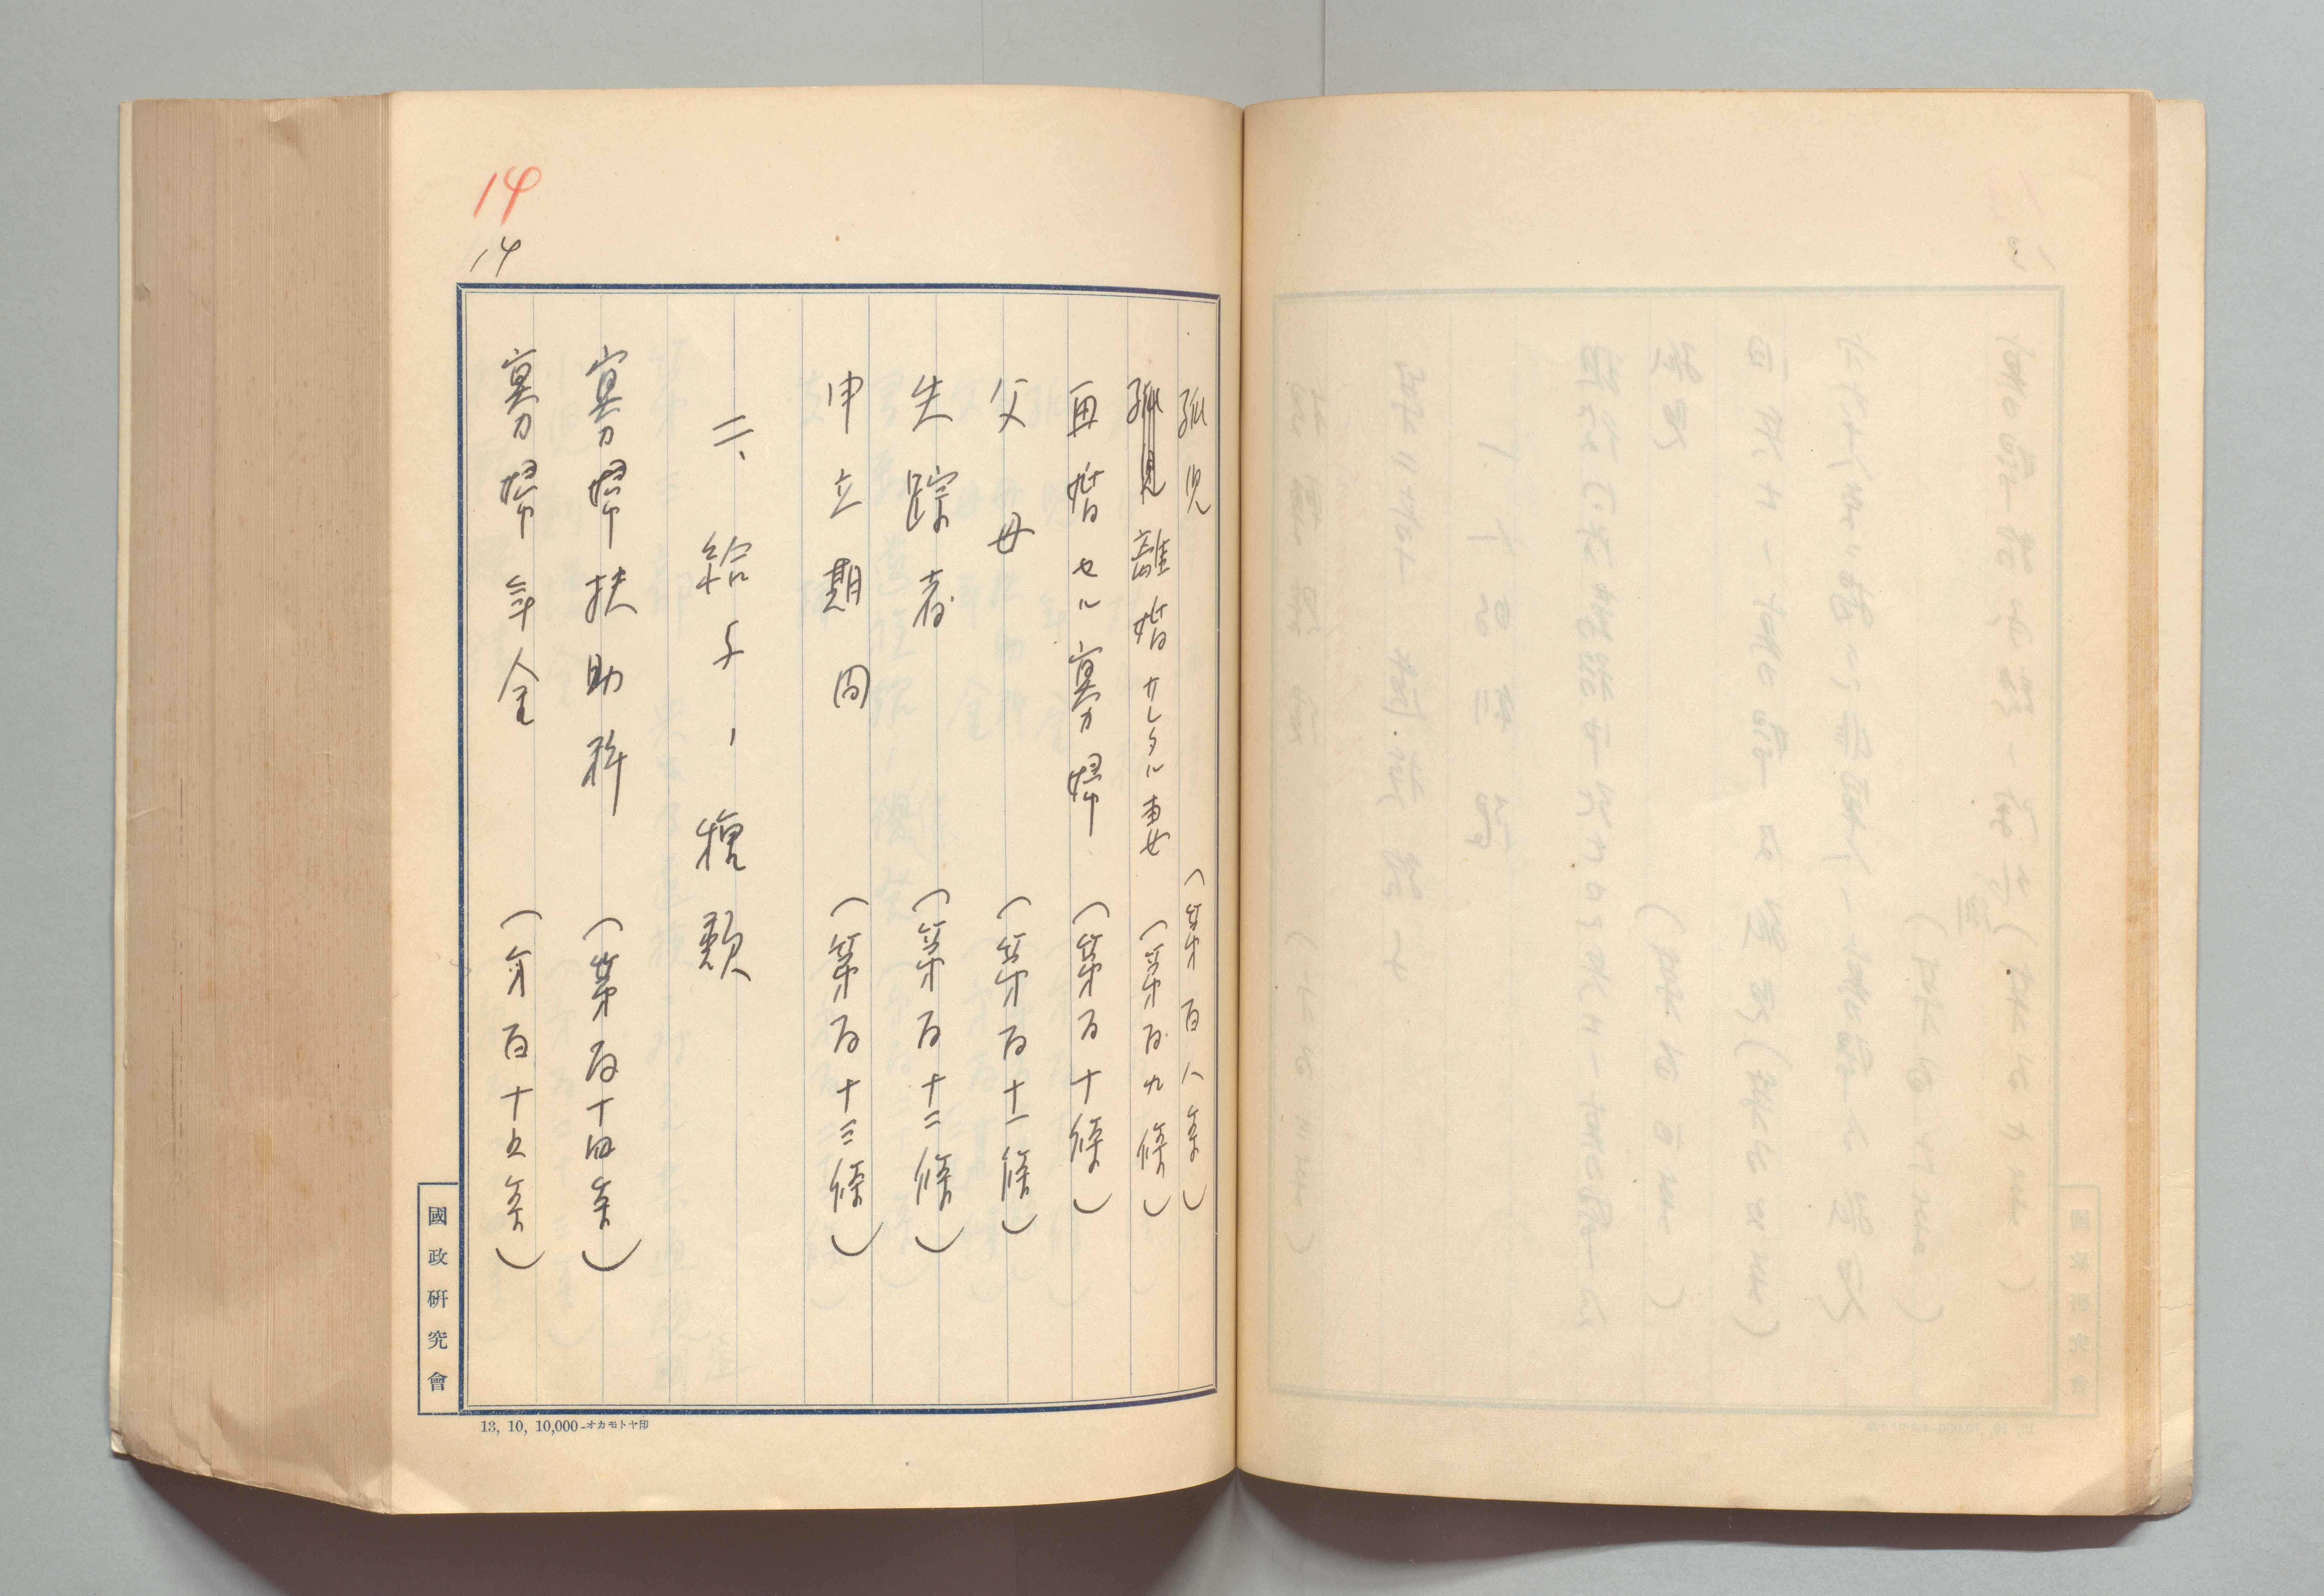 14
14
孤児（第百八条）
孤児離婚サレタル妻（第百九條）
再婚セル寡婦（第百十條）
父母（第百十一條）
失踪者（第百十二條）
申立期間（第百十三條）
二、給与ノ種類
寡婦扶助料（第百十四条）
寡婦年金（第百十五条）
國政研究會
13, 10, 10,000-オカモトヤ印